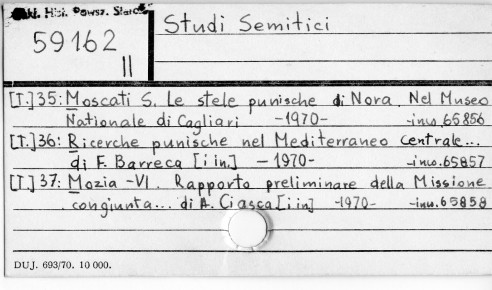 Zakł. Hist. Powsz. Staroż.
59162
II
Studi Semitici
[T.]35: Moscati S. Le stele puniche di Nora. Nel Museo
Nationale di Cagliari -1970- -inw.65856
[T.]36: Ricerche puniche nel Mediterraneo centrale...
di F. Barreca [i in] -1970- -inw.65857
[T.]37: Mozia -VI. Rapporto preliminare della Missione
congiunta... di A. Ciasca [i in] -1970- -inw.65858
DUJ. 693/70. 10 000.